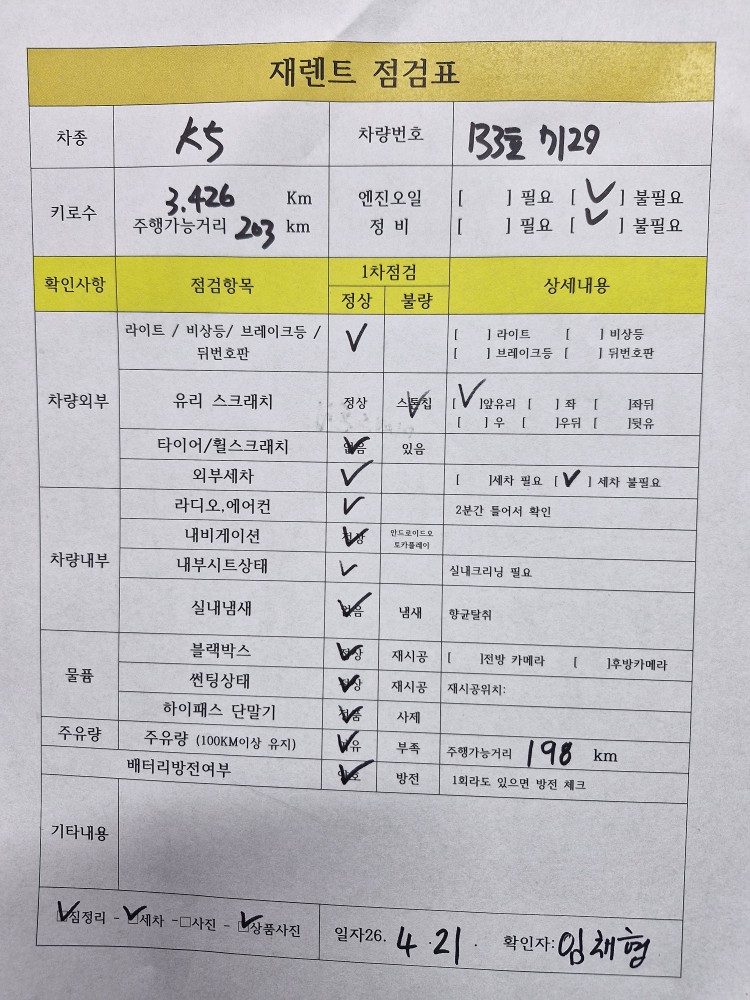 재렌트 점검표
차종 K5 차량번호 133호 7129
키로수 3.426 Km 엔진오일 [ ] 필요 [ ✓ ] 불필요
주행가능거리 203 km 정 비 [ ] 필요 [ ✓ ] 불필요
확인사항 점검항목 1차점검 상세내용
정상 불량
차량외부
라이트 / 비상등/ 브레이크등 / ✓ [ ] 라이트 [ ] 비상등
뒤번호판 [ ] 브레이크등 [ ] 뒤번호판
유리 스크래치 정상 스톤칩 ✓ [ ✓ ]앞유리 [ ] 좌 [ ]좌뒤
[ ] 우 [ ]우뒤 [ ]뒷유
타이어/휠스크래치 없음 ✓ 있음
외부세차 ✓ [ ]세차 필요 [ ✓ ] 세차 불필요
차량내부
라디오,에어컨 ✓ 2분간 틀어서 확인
내비게이션 정상 ✓ 안드로이드오
토카플레이
내부시트상태 ✓ 실내크리닝 필요
실내냄새 없음 ✓ 냄새 향균탈취
물품
블랙박스 정상 ✓ 재시공 [ ]전방 카메라 [ ]후방카메라
썬팅상태 정상 ✓ 재시공 재시공위치:
하이패스 단말기 정품 ✓ 사제
주유량 주유량 (100KM이상 유지) ✓ 부족 주행가능거리 198 km
배터리방전여부 양호 ✓ 방전 1회라도 있으면 방전 체크
기타내용
☑짐정리 - ☑세차 -□사진 - ☑상품사진 일자26. 4 . 21 . 확인자: 임채형